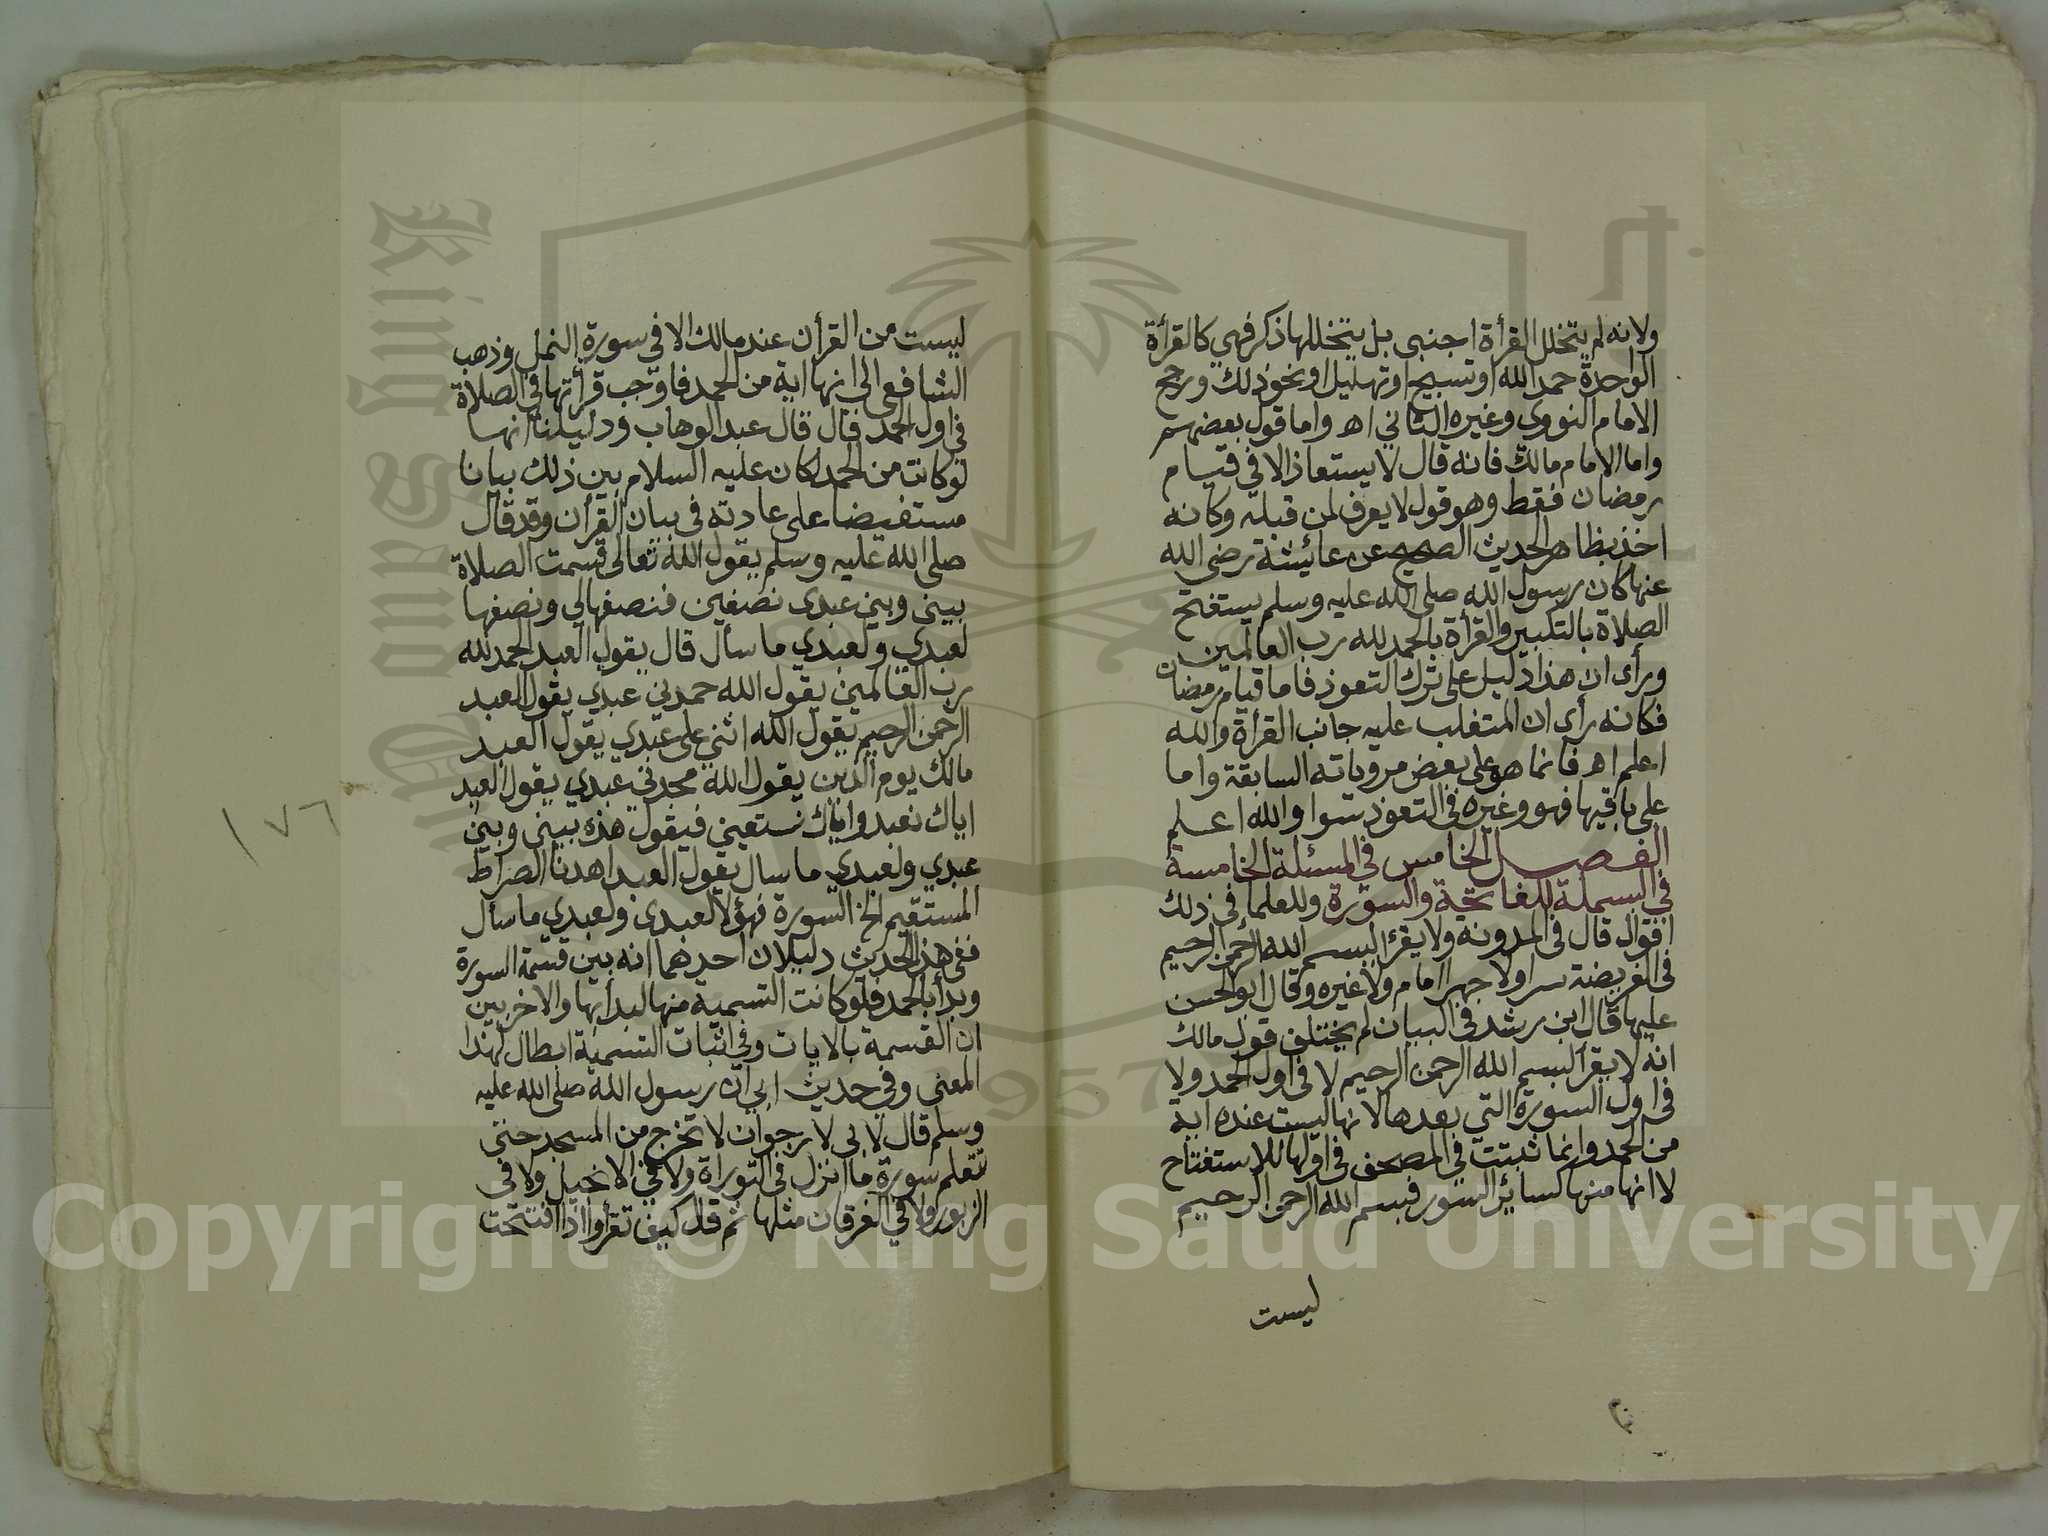 ولانه لم يتخلل القرأة اجنبي بل يتخللها ذكر فهي كالقرأة
الواحدة حمد الله او تسبيح او تهليل او نحو ذلك ورجح
الامام النووي وغيره الثاني اه واما قول بعضهم
واما الامام مالك فانه قال لا يستعاذ الا في قيام
رمضان فقط وهو قول لا يعرف لمن قبله وكانه
اخذ بظاهر الحديث الصحيح عن عائيشة رضي الله
عنها كان رسول الله صلى الله عليه وسلم يستفتح
الصلاة بالتكبير والقرأة بالحمد لله رب العالمين
ورأى ان هذا دليل على ترك التعوذ فاما قيام رمضان
فكانه رأى ان المتغلب عليه جانب القرأة والله
اعلم اه فانما هو على بعض مروياته السابقة واما
على باقيها فهو وغيره في التعوذ سوا والله اعلم
الفصل الخامس في المسئلة الخامسة
في البسملة للفاتحة والسورة وللعلما في ذلك
اقوال قال في المدونة ولا يقرأ بسم الله الرحمن الرحيم
في الفريضة سرا ولا جهرا امام ولا غيره وقال ابو الحسن
عليها قال ابن رشد في البيان لم يختلف قول مالك
انه لا يقرأ بسم الله الرحمن الرحيم لا في اول الحمد ولا
في اول السورة التي بعدها لانها ليست عنده اية
من الحمد وانما ثبتت في المصحف في اولها للاستفتاح
لا انها منها كسائر السور فبسم الله الرحمن الرحيم
ليست
ليست من القرأن عند مالك الا في سورة النمل وذهب
الشافعي الى انها اية من الحمد فاوجب قرأتها في الصلاة
في اول الحمد قال قال عبد الوهاب ودليلنا انها
لو كانت من الحمد لكان عليه السلام بين ذلك بيانا
مستفيضا على عادته في بيان القرأن وقد قال
صلى الله عليه وسلم يقول الله تعالى قسمت الصلاة
بيني وبين عبدي نصفين فنصفها لي ونصفها
لعبدي ولعبدي ما سأل قال يقول العبد الحمد لله
رب العالمين يقول الله حمدني عبدي يقول العبد
الرحمن الرحيم يقول الله اثنى على عبدي يقول العبد
مالك يوم الدين يقول الله مجدني عبدي يقول العبد
اياك نعبد واياك نستعين فيقول هذه بيني وبين
عبدي ولعبدي ما سال يقول العبد اهدنا الصراط
المستقيم الخ السورة فهؤلا لعبدي ولعبدي ما سأل
ففي هذا الحديث دليلان احدهما انه بين قسمة السورة
وبدأ بالحمد فلو كانت التسمية منها لبدأ بها والاخر بين
ان القسمة بالايات وفي اثبات التسمية ابطال لهذا
المعنى وفي حديث ابي ان رسول الله صلى الله عليه
وسلم قال لابي لا رجو ان لا تخرج من المسجد حتى
تعلم سورة ما انزل في التوراة ولا في الانجيل ولا في
الزبور ولا في الفرقان مثلها ثم قال كيف تقرأ اذا افتتحت
١٧٦
King Saud University
1957
Copyright © King Saud University